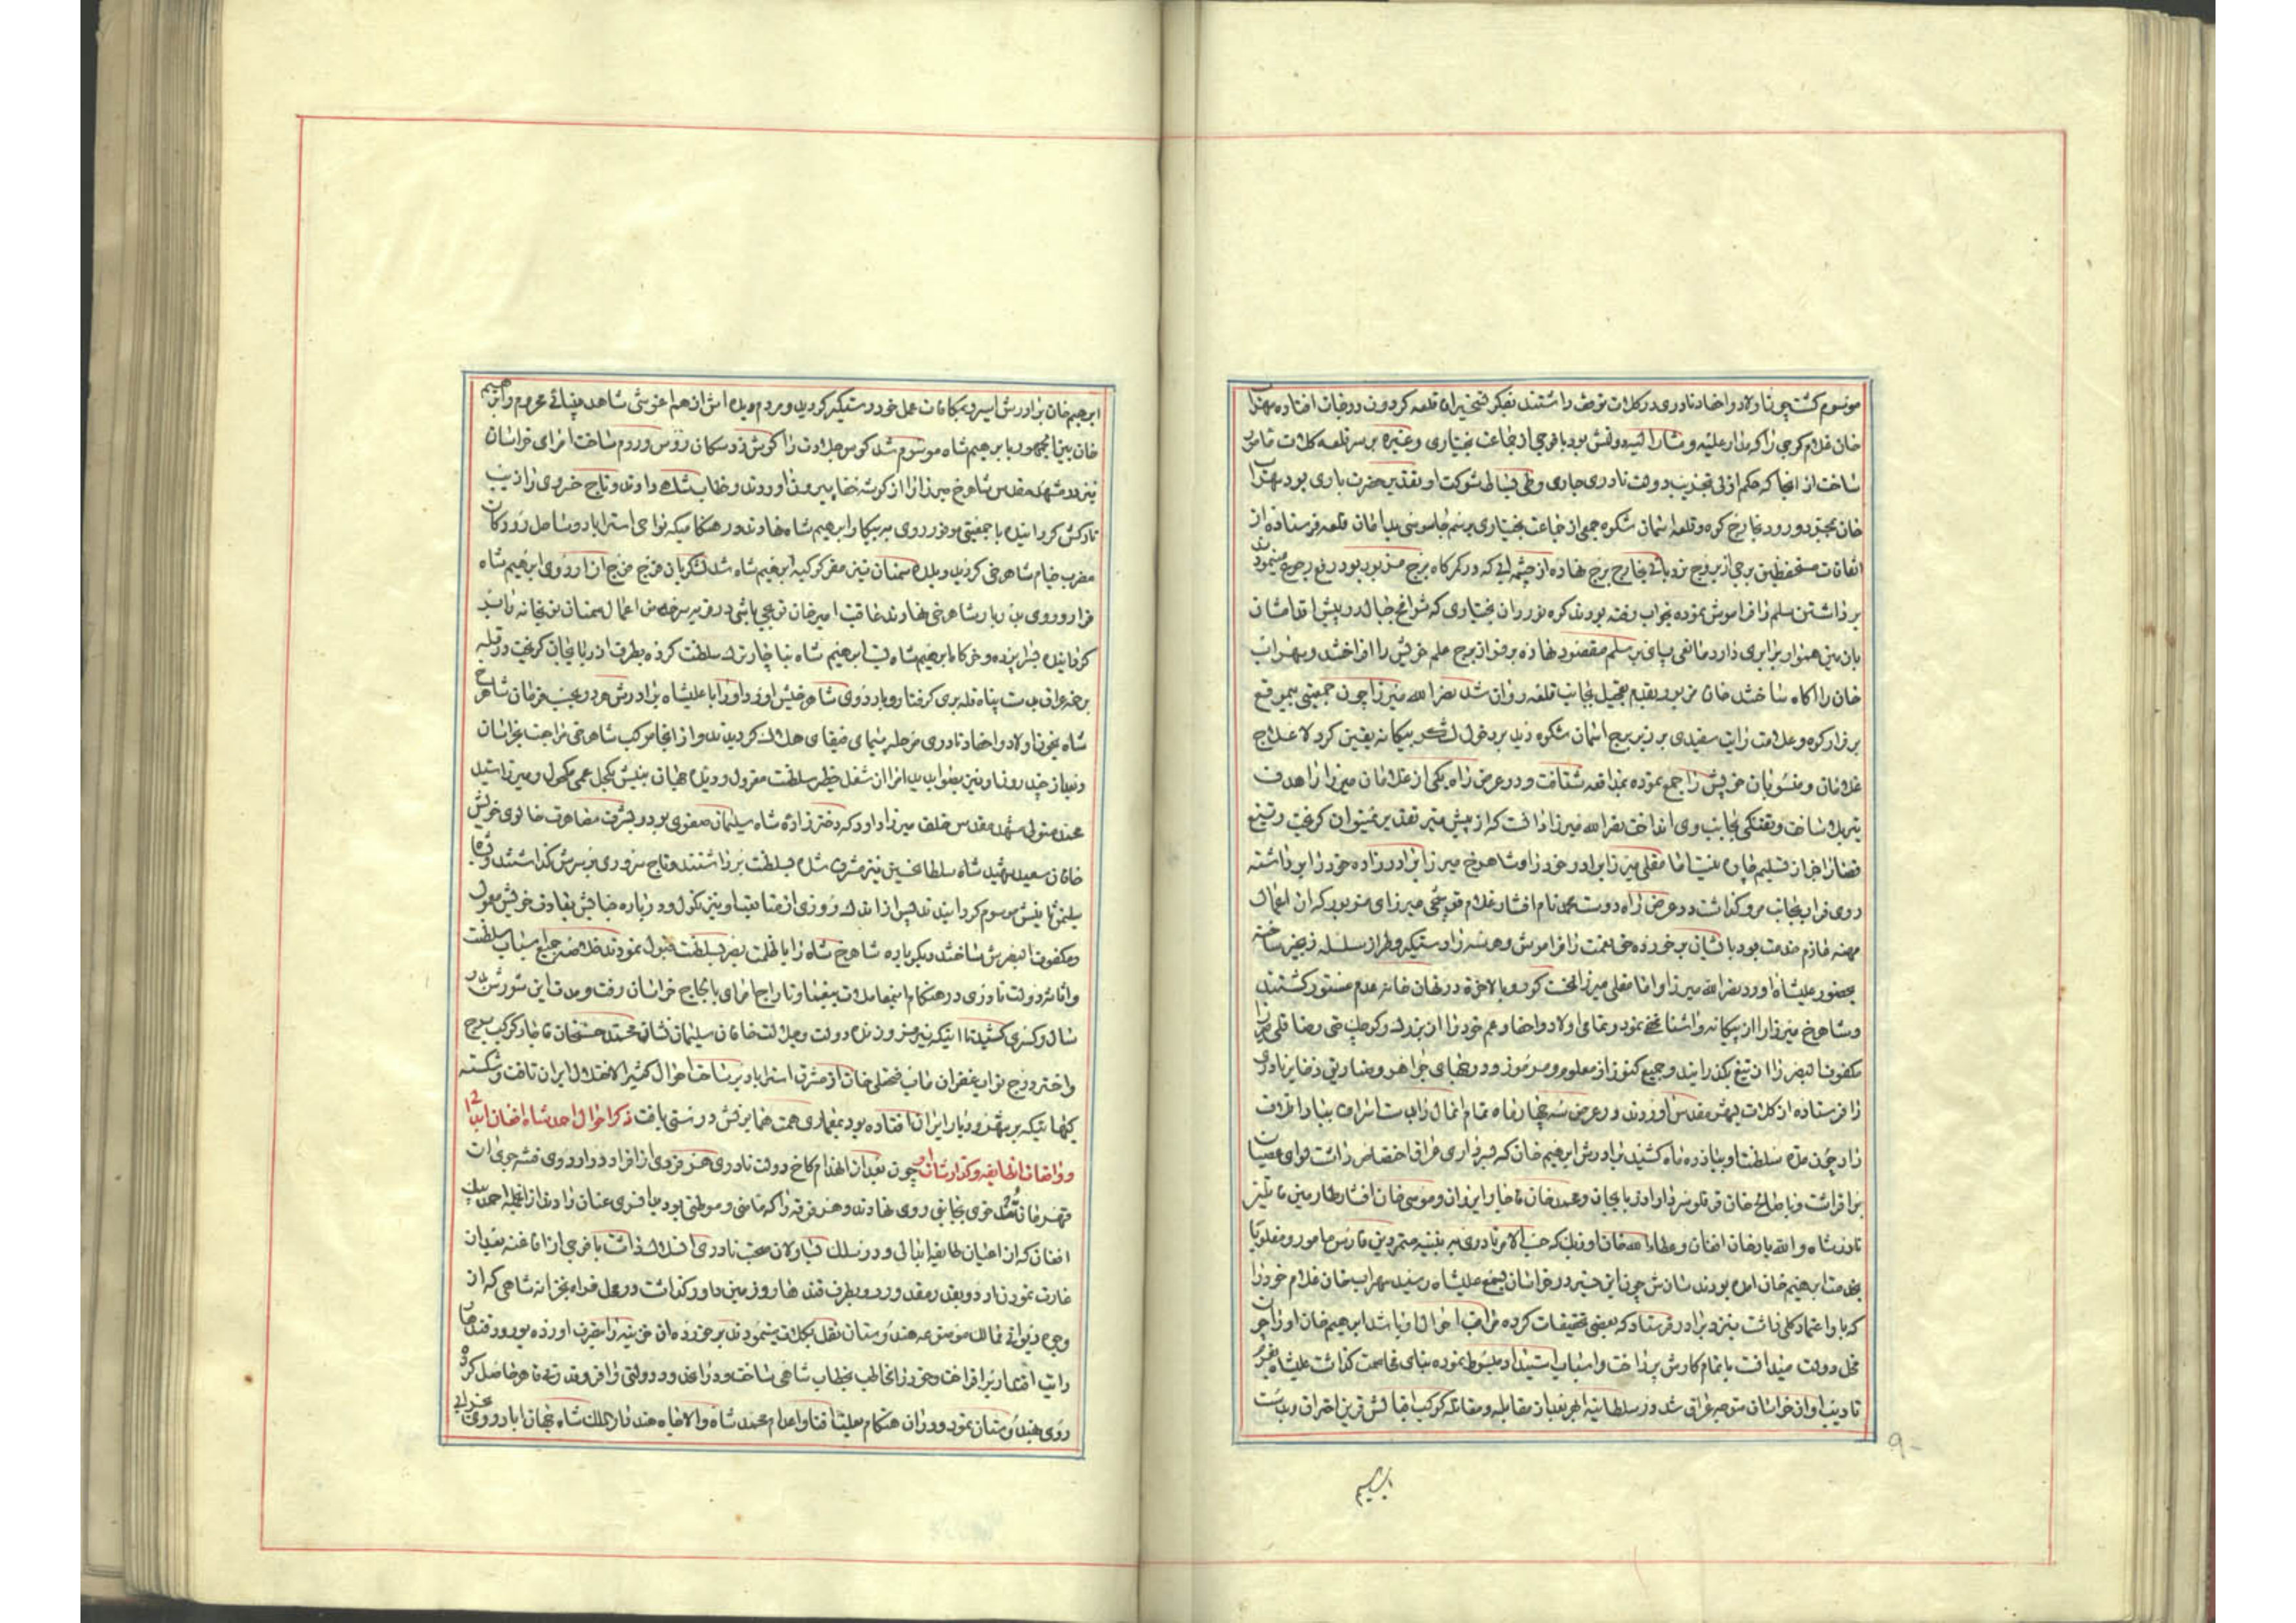 موسوم گشت چون اولاد و احفاد نادری در کلات توقف داشتند بفکر تسخیر ان قلعه کردون درجات افتاده سهراب
خان غلام کرجی را که مدار علیه و مشار الیه دولتش بود با فوجی از جماعت بختیاری و غیره بر سر قلعه کلات مامور
ساخت از انجا که حکم ازلی بتخریب دولت نادری جاری و طی بساط شوکت او بتقدیر حضرت باری بود سهراب
خان بمجرد ورود بخارج کوه و قلعه اسمان شکوه جمعی از جماعت بختیاری برسم جاسوسی بپایان قلعه فرستاده از
اتفاقات مستحفظین برجی از بروج نردبانی بخارج برج نهاده از چشمه ابی که در کمرکاه برج مزبور بود رفع حوایج مینمودند
برداشتن سلم را فراموش نموده بخواب رفته بودند کوه نوردان بختیاری که شوامخ جبال در پیش اقدامشان
بازمین هموار برابری دارد مانعی پای بر سلم مقصود نهاده بر فراز برج علم خویش را افراختند و سهراب
خان را اکاه ساختند خان مزبور بقدم تعجیل بجانب قلعه روان شد نصر الله میرزا چون جمعیتی بیموقع
بر فراز کوه و علامت رایت سفیدی بر زبر برج اسمان شکوه دید بر دخول لشکر بیکانه یقین کرد لاعلاج
غلامان و منسوبان خویش را جمع نموده بمدافعه شتافت و در عرض راه یکی از غلامان میرزا را هدف
تیر بلا ساخت و تفنکی بجانب وی انداخت نصر الله میرزا دانست که از پیش تیر تقدیر نمیتوان کریخت و تیغ
قضا را جز از تسلیم چاره نیست امامقلی میرزا برادر خود را و شاهرخ میرزا برادرزاده خود را برداشته
روی فرار بجانب مرو کذاشت در عرض راه دوست محمد نام افشار غلام قورچی میرزای مزبور که از اعمال
مهنه عازم خدمت بود بایشان برخورده حق نعمت را فراموش و هر سه را دستکیر و طراز سلسله زنجیر ساخته
بحضور علیشاه اورد نصر الله میرزا و امامقلی میرزا لخت کور و بالاخره در نهان خانه عدم مستور کشتند
و شاهرخ میرزا را از بیکانه و اشنا مخفی نمود و تمامی اولاد و احفاد و عم خود را از بزرک و کوچک حتی رضا قلی میرزا
مکفوف البصر را از تیغ بکذرانید و جمیع کنوز از معلوم و مرموز و درجهای جواهر و صنادیق ذخایر نادری
را فرستاده از کلات بمشهد مقدس اوردند و در عرض سه چهار ماه تمام انمال را بدست اسراف بباد اتلاف
داد چون مدة سلطنت او بیازده ماه کشید برادرش ابرهیم خان که سرداری عراق اختصاص داشت لوای عصیان
برافراشت و با صالح خان قرقلو سردار اذربایجان و محمد خان قاجار ایروان و موسی خان افشار طارمین ما بین
نادر شاه و الله یار خان افغان و عطاء الله خان اوزبک که حسب الامر نادری به تنبیه متمردین فارس مامور و مغلوبا
بخدمت ابرهیم خان امده بودند سازش چون این خبر در خراسان بسمع علیشاه رسید سهراب خان غلام خود را
که با و اعتماد کلی داشت بنزد برادر فرستاد که بعضی تحقیقات کرده مراقب احوال او باشد ابرهیم خان او را چون
مخل دولت میدانست باتمام کارش پرداخت و اسباب استبداد مبسوط نموده بنای مخاصمت کذاشت علیشاه بعزم
تادیب او از خراسان متوجه عراق شد در سلطانیه ابهر بعد از مقابله و مقاتله کوکب اقبالش قرین احتراق و بدست
ابرهیم
۹۰
ابرهیم خان برادرش اسیر و بمکافات عمل خود دستکیر کردید و مردم دیده اش از هم اغوشی شاهد بینائی محروم و ابرهیم
خان بین الجمهور با برهیم شاه موسوم شد کوس جلادت را کوش زد سکان روس و روم ساخت امرای خراسان
نیز در مشهد مقدس شاهرخ میرزا را از کوشه خفا بیرون اوردند و خطاب شاه دادند و تاج خسروی را زیب
تارکش کردانیده با جمعیتی موفور روی به پیکار ابرهیم شاه نهادند در هنکامیکه نواحی استراباد و ساحل رودکان
مضرب خیام شاهرخی کردید و بلده سمنان نیز مقر کوکبه ابرهیم شاه شد لشکریان فوج فوج از اردوی ابرهیم شاه
فرار و روی بدربار شاهرخی نهادند عاقبت امیر خان توپچی باشی در قریه سرخه من اعمال سمنان توپخانه را بند
کردانیده خبر اینده و خرکاه ابرهیم شاه شد ابرهیم شاه بناچار ترک سلطنت کرده بطرف اذربایجان کریخت در قلعه
شاه بخون اولاد و احفاد نادری مرحله پیمای فیفای هلاک کردیدند و از انجا موکب شاهرخی مراجعت بخراسان
و بعد از چند روز او نیز بصوابدید امرا از شغل خطیر سلطنت معزول و دیده جهان بینش بکحل عمی مکحول و میرزا سید
محمد متولی مشهد مقدس خلف میرزا داود که دختر زاده شاه سلیمان صفوی بود و بشرف مصاهرت خالوی خویش
خاقان سعید شهید شاه سلطان حسین نیز مشرف شده بسلطنت برداشتند و تاج سروری بر سرش کذاشتند و بشاه
سلیمن ثانیش موسوم کردانیدند پس از اندک روزی از متابعت او نیز نکول و در باره خبانتش بقانون خویش معمول
و مکفوف البصرش ساختند و دیکر باره شاهرخ شاه را با ظلمت بصر بسلطنت قبول نمودند خلاصه جمیع اسباب سلطنت
و اثاثه دولت نادری در هنکام اینمعاملات بیغما و تاراج امرای با لجاج خراسان رفت و مدت این شورش دو
سال و کسری کشید تا اینکه نیر فروزنده دولت و جلالت خاقان سلیمان نشان محمد حسنخان قاجار کوکب برج
و اختر درج نواب غفران ماب فتحعلی خان از مشرق استراباد بر ساحت احوال کثیر الاختلال ایران تافت و شکسته
کیهائیکه بر بهر دیار ایران افتاده بود بمعماری همت همایونش درستی یافت ذکر احوال احمد شاه افغان ابدالی
و واقعات انطایفه و کذارشات او چون بعد از انهدام کاخ دولت نادری هر فردی از افراد در اردوی حشر جوش ان
قهرمان تهمتن خوی بجانبی روی نهادند و هر فرقه را که مامنی و موطنی بود بدانسوی عنان دادند از انجمله احمد بیک
افغان که از اعیان طایفه ابدالی و در سلک یساولان صحبت نادری انسلاک داشت با فوجی از افاغنه بعد از
غارت نمودن اردو بقدر مقدور رو بطرف قندهار و زمین داور کذاشت در محل فراه بخزانه شاهی که از
وجوه دیوانی ممالک موسومه هندوستان نقل بکلات مینمودند برخورده ان خزینه را بتصرف اورده بورود قندهار
رایت اقتدار برافراخت و خود را مخاطب بخطاب شاهی ساخت و در اندک وقت دولتی وافر و قدرتی قاهر حاصل کرده
روی بهندوستان نمود و در ان هنکام علیشا فنا و اعدام محمد شاه والاجاه هند دار الملک شاه جهان اباد رو وی بخرابی